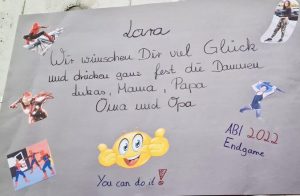 Lara
Wir wünschen Dir viel Glück
und drücken ganz fest die Daumen
Lukas, Mama, Papa
Oma und Opa
ABI 2022
Endgame
You can do it!